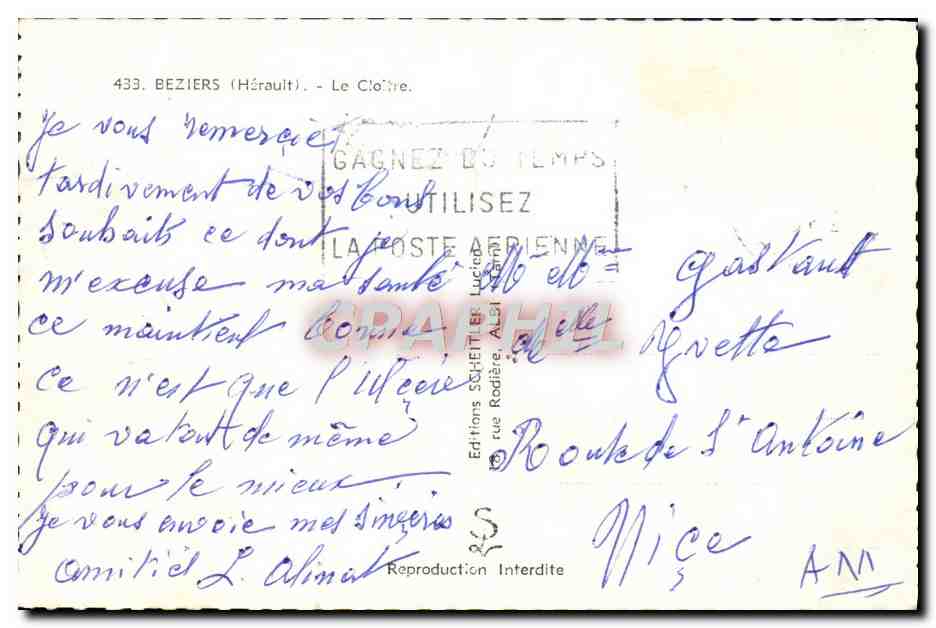 433. BEZIERS (Hérault). - Le Cloître.
GAGNEZ DU TEMPS
UTILISEZ
LA POSTE AERIENNE
Je vous remercie
tardivement de vos bons
souhaits ce dont je
m'excuse ma santé
ce maintient bonne
ce n'est que l'
qui va tout de même
pour le mieux.
je vous envoie mes sinçères
amitiés L. Alinat
Editions SCHEITLER Lucien
18, rue Rodière, ALBI (Tarn)
Mr Mme Gastault
Yvette
Route de St Antoine
Niçe
AM
Reproduction Interdite
CPAPHIL